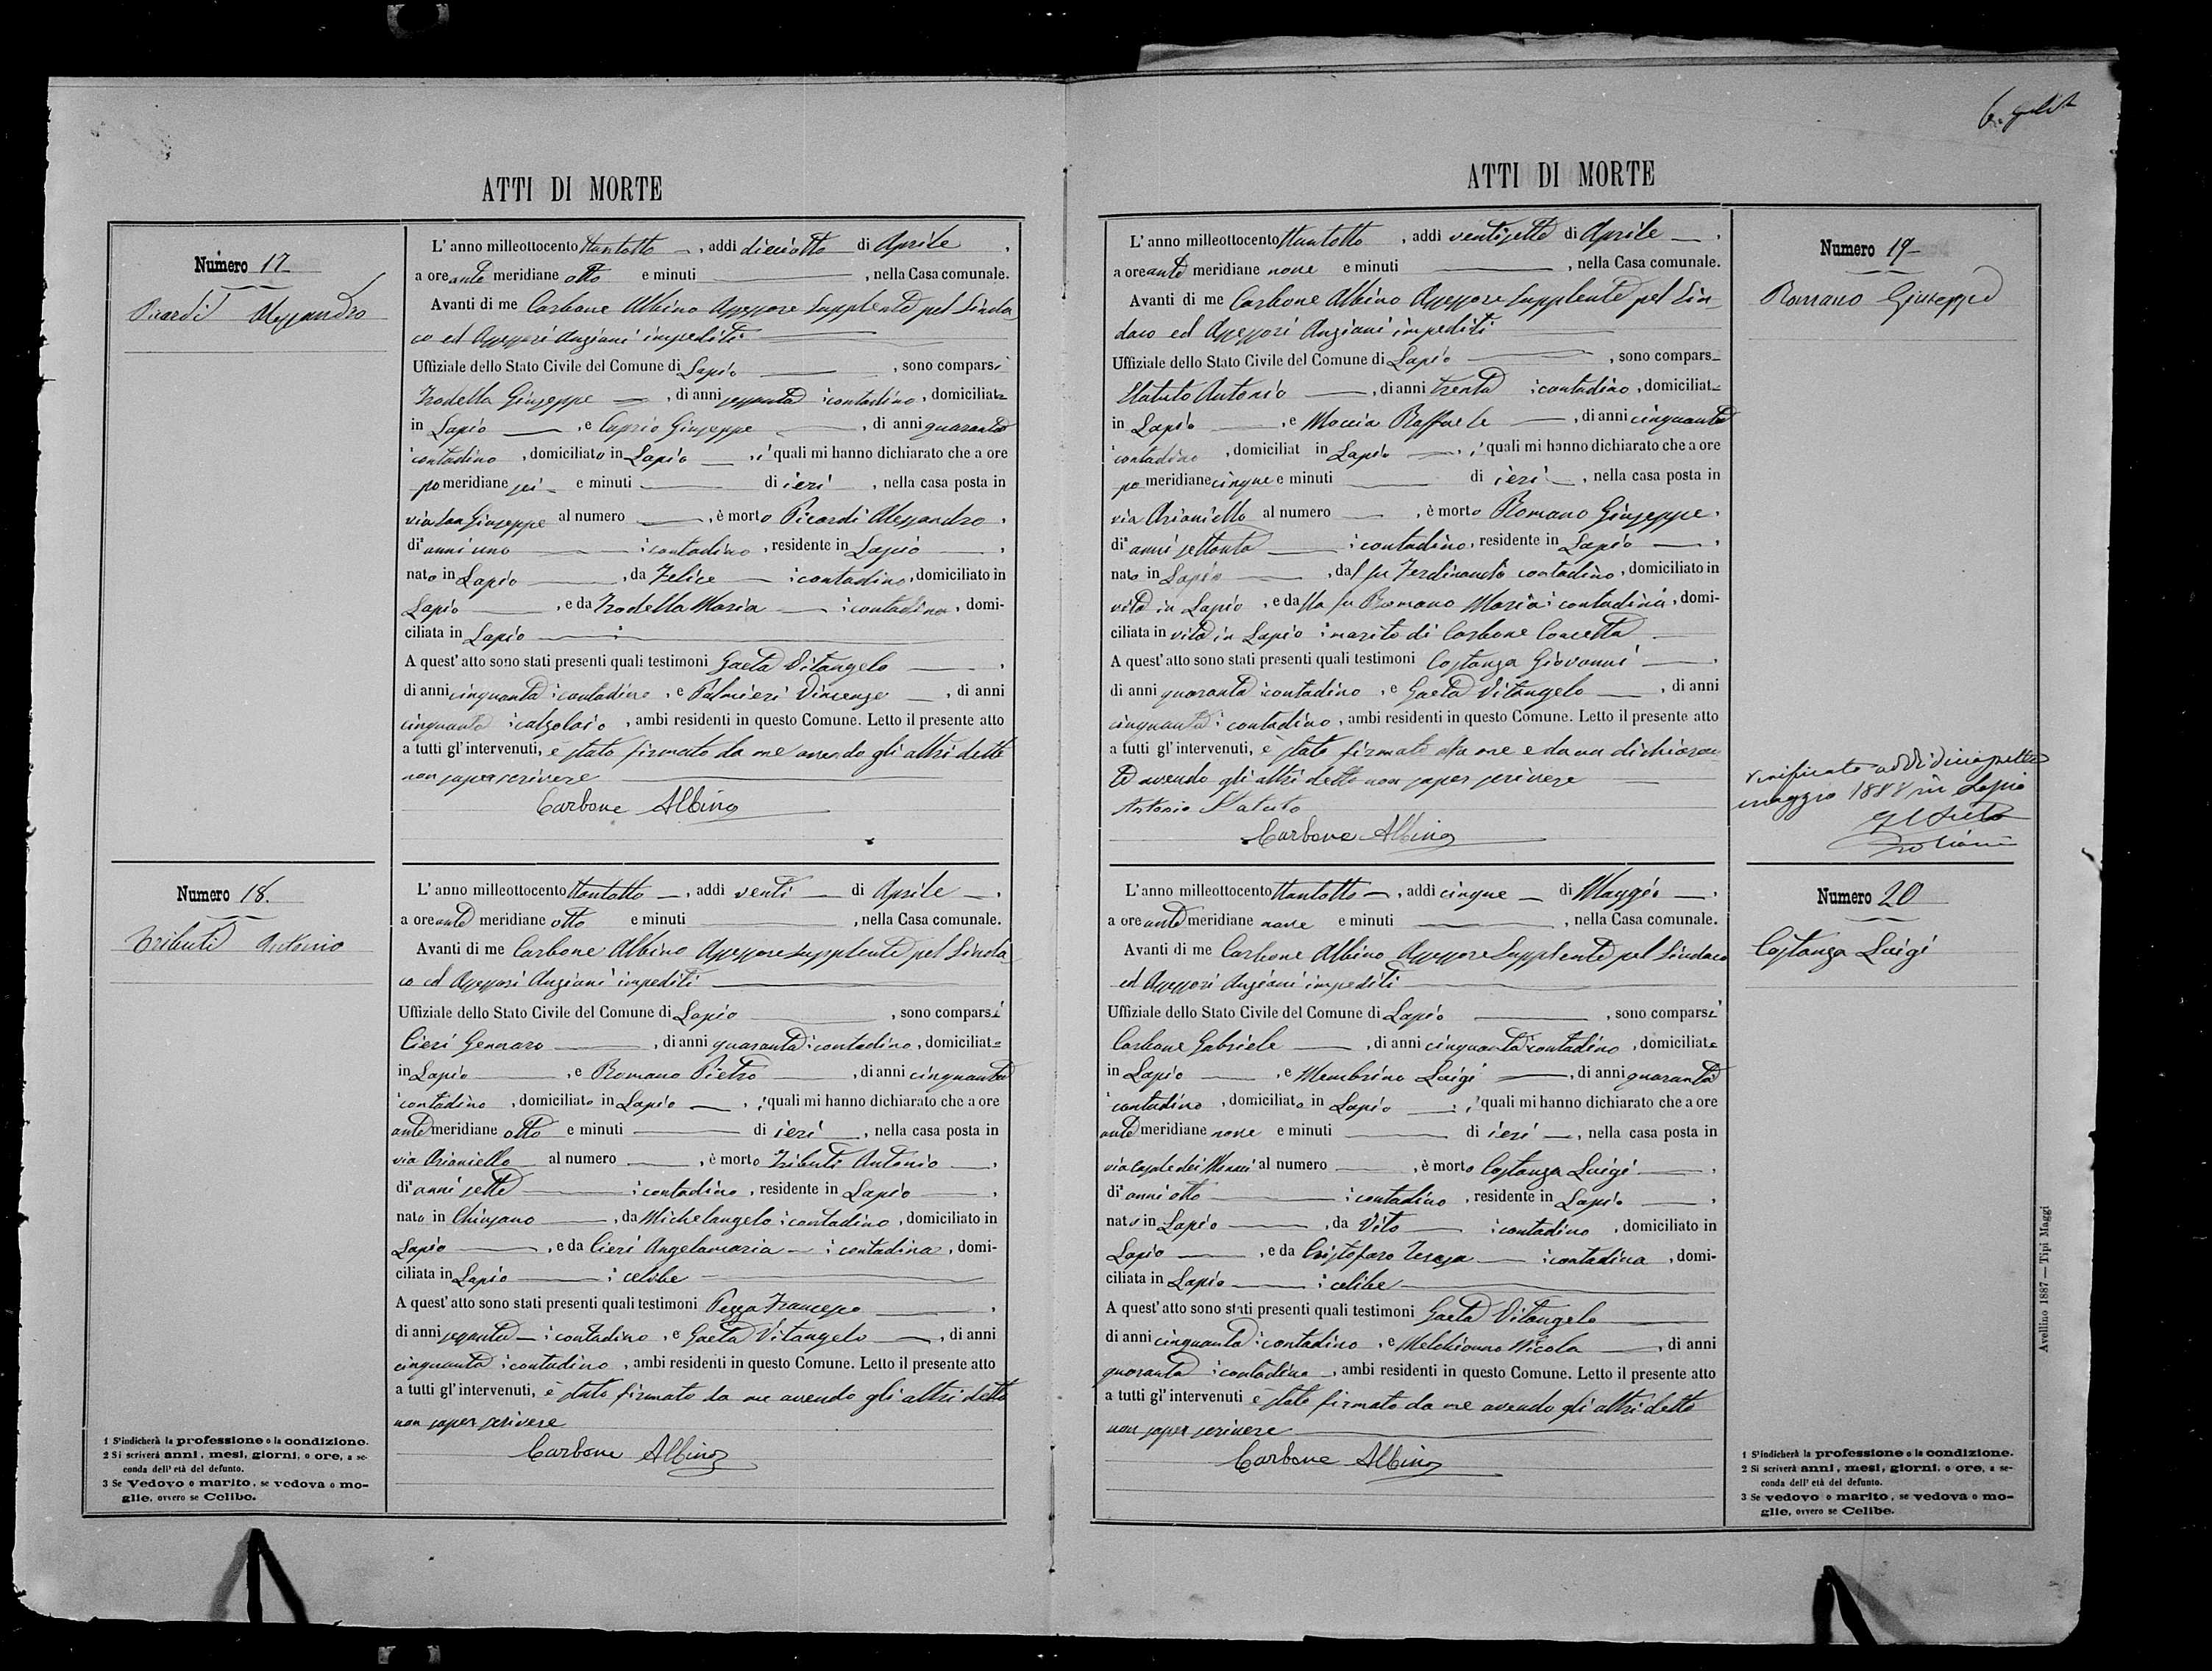 ATTI DI MORTE
Numero 17
Picardi Alessandro
L' anno milleottocento ttantotto, addì dieciotto di Aprile,
a ore ante meridiane otto e minuti , nella Casa comunale.
Avanti di me Carbone Albino Assessore Supplente pel Sinda
co ed Assessori Anziani impediti
Uffiziale dello Stato Civile del Comune di Lapio , sono comparsi
Trodella Giuseppe , di anni sessanta contadino, domiciliato
in Lapio , e Caprio Giuseppe , di anni quaranta
contadino , domiciliato in Lapio , i quali mi hanno dichiarato che a ore
po meridiane sei e minuti di ieri , nella casa posta in
via San Giuseppe al numero , è morto Picardi Alessandro,
di anni uno contadino, residente in Lapio ,
nato in Lapio , da Felice contadino, domiciliato in
Lapio , e da Trodella Maria contadina, domi-
ciliata in Lapio
A quest' atto sono stati presenti quali testimoni Gaeta Vitangelo ,
di anni cinquanta contadino , e Palmieri Vincenzo , di anni
cinquanta calzolaio , ambi residenti in questo Comune. Letto il presente atto
a tutti gl' intervenuti, è stato firmato da me avendo gli altri detto
non saper scrivere
Carbone Albino
Numero 18.
Tributi Antonio
L' anno milleottocento ttantotto , addì venti di Aprile ,
a ore ante meridiane otto e minuti , nella Casa comunale.
Avanti di me Carbone Albino Assessore Supplente pel Sinda
co ed Assessori Anziani impediti
Uffiziale dello Stato Civile del Comune di Lapio , sono comparsi
Cieri Gennaro , di anni quaranta contadino, domiciliato
in Lapio , e Romano Pietro , di anni cinquanta
contadino , domiciliato in Lapio , i quali mi hanno dichiarato che a ore
ante meridiane otto e minuti di ieri , nella casa posta in
via Arianiello al numero , è morto Tributi Antonio ,
di anni sette contadino, residente in Lapio ,
nato in Chiusano , da Michelangelo contadino, domiciliato in
Lapio , e da Cieri Angelamaria contadina, domi-
ciliata in Lapio celibe
A quest' atto sono stati presenti quali testimoni Pezza Francesco ,
di anni sessanta contadino , e Gaeta Vitangelo , di anni
cinquanta contadino , ambi residenti in questo Comune. Letto il presente atto
a tutti gl' intervenuti, è stato firmato da me avendo gli altri detto
non saper scrivere
Carbone Albino
1 S'indicherà la professione o la condizione.
2 Si scriverà anni, mesi, giorni, o ore, a se-
conda dell' età del defunto.
3 Se Vedovo o marito, se vedova o mo-
glie, ovvero se Celibe.
ATTI DI MORTE
L' anno milleottocento ttantotto , addì ventisette di Aprile ,
a ore ante meridiane nove e minuti , nella Casa comunale.
Avanti di me Carbone Albino Assessore Supplente pel Sin
daco ed Assessori Anziani impediti
Uffiziale dello Stato Civile del Comune di Lapio , sono compars
Statuto Antonio , di anni trenta contadino, domiciliat
in Lapio , e Moccia Raffaele , di anni cinquanta
contadino , domiciliat in Lapio , i quali mi hanno dichiarato che a ore
po meridiane cinque e minuti di ieri , nella casa posta in
via Arianiello al numero , è morto Romano Giuseppe,
di anni settanta contadino, residente in Lapio ,
nato in Lapio , dal fu Ferdinando contadino, domiciliato in
vita in Lapio , e dalla fu Romano Maria contadina, domi-
ciliata in vita in Lapio marito di Carbone Concetta
A quest' atto sono stati presenti quali testimoni Costanza Giovanni ,
di anni quaranta contadino , e Gaeta Vitangelo , di anni
cinquanta contadino, ambi residenti in questo Comune. Letto il presente atto
a tutti gl' intervenuti, è stato firmato da me e da un dichiaran
te avendo gli altri detto non saper scrivere
Antonio Statuto
Carbone Albino
Numero 19
Romano Giuseppe
Verificato addì diciassette
maggio 1888 in Lapio
L' anno milleottocento ttantotto , addì cinque di Maggio ,
a ore ante meridiane nove e minuti , nella Casa comunale.
Avanti di me Carbone Albino Assessore Supplente pel Sindaco
ed Assessori Anziani impediti
Uffiziale dello Stato Civile del Comune di Lapio , sono comparsi
Carbone Gabriele , di anni cinquanta contadino , domiciliato
in Lapio , e Membrino Luigi , di anni quaranta
contadino , domiciliato in Lapio , i quali mi hanno dichiarato che a ore
ante meridiane nove e minuti di ieri , nella casa posta in
via Casale dei Monaci al numero , è morto Costanza Luigi ,
di anni otto contadino , residente in Lapio ,
nato in Lapio , da Vito contadino , domiciliato in
Lapio , e da Cristofaro Teresa contadina , domi-
ciliata in Lapio celibe
A quest' atto sono stati presenti quali testimoni Gaeta Vitangelo
di anni cinquanta contadino , e Melchionno Nicola , di anni
quaranta contadino , ambi residenti in questo Comune. Letto il presente atto
a tutti gl' intervenuti è stato firmato da me avendo gli altri detto
non saper scrivere
Carbone Albino
Numero 20
Costanza Luigi
1 S'indicherà la professione o la condizione.
2 Si scriverà anni, mesi, giorni, o ore, a se-
conda dell' età del defunto.
3 Se vedovo o marito, se vedova o mo-
glie, ovvero se Celibe.
Avellino 1887 — Tipi Maggi